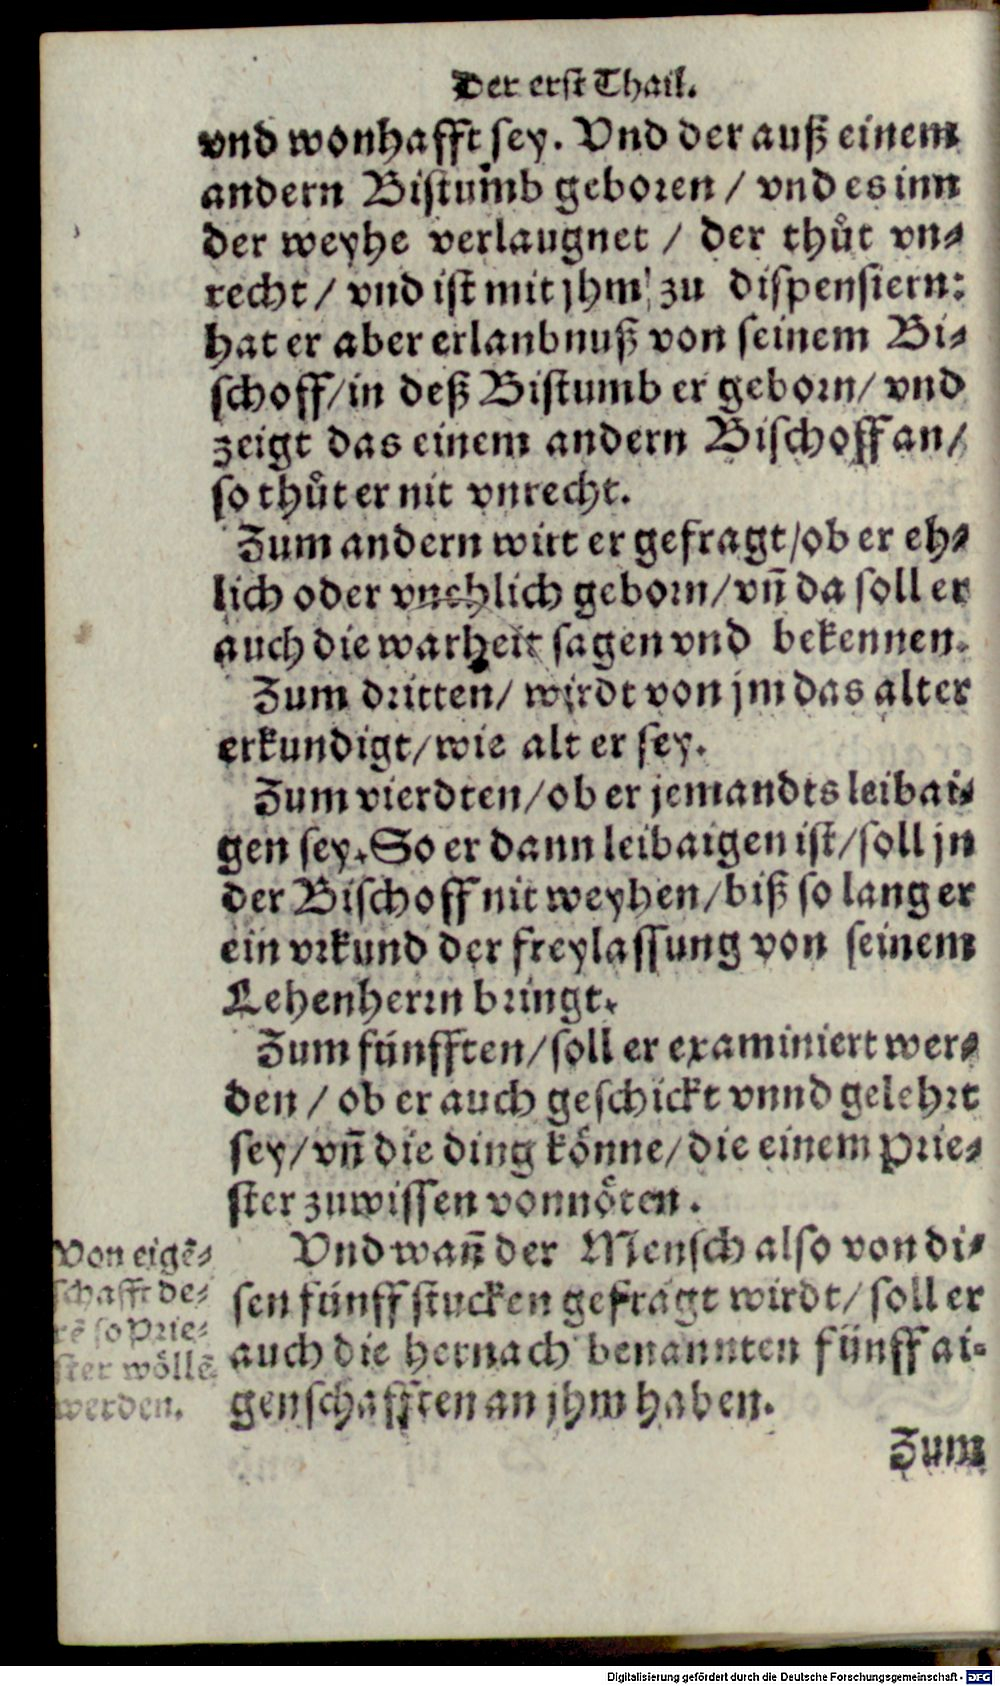 Der erst Thail.
vnd wonhafft sey. Vnd der auß einem
andern Bistumb geboren / vnd es inn
der weyhe verlaugnet / der thůt vn⸗
recht / vnd ist mit jhm zu dispensiern:
hat er aber erlaubnuß von seinem Bi⸗
schoff/in deß Bistumb er geborn/ vnd
zeigt das einem andern Bischoff an/
so thůt er nit vnrecht.
Zum andern wirt er gefragt/ob er eh⸗
lich oder vnehlich geborn/vñ da soll er
auch die warheit sagen vnd bekennen.
Zum dritten/ wirdt von jm das alter
erkundigt/wie alt er sey.
Zum vierdten/ob er jemandts leibai⸗
gen sey. So er dann leibaigen ist/soll jn
der Bischoff nit weyhen/biß so lang er
ein vrkund der freylassung von seinem
Lehenherrn bringt.
Zum fünfften/soll er examiniert wer⸗
den / ob er auch geschickt vnnd gelehrt
sey/vñ die ding könne/die einem prie⸗
ster zuwissen vonnöten.
Von eigē⸗
schafft de⸗
rē so prie⸗
ster wöllē
werden.
Vnd wañ der Mensch also von di⸗
sen fünff stucken gefragt wirdt/ soll er
auch die hernach benannten fünff ai⸗
genschafften an jhm haben.
Zum
Digitalisierung gefördert durch die Deutsche Forschungsgemeinschaft - DFG